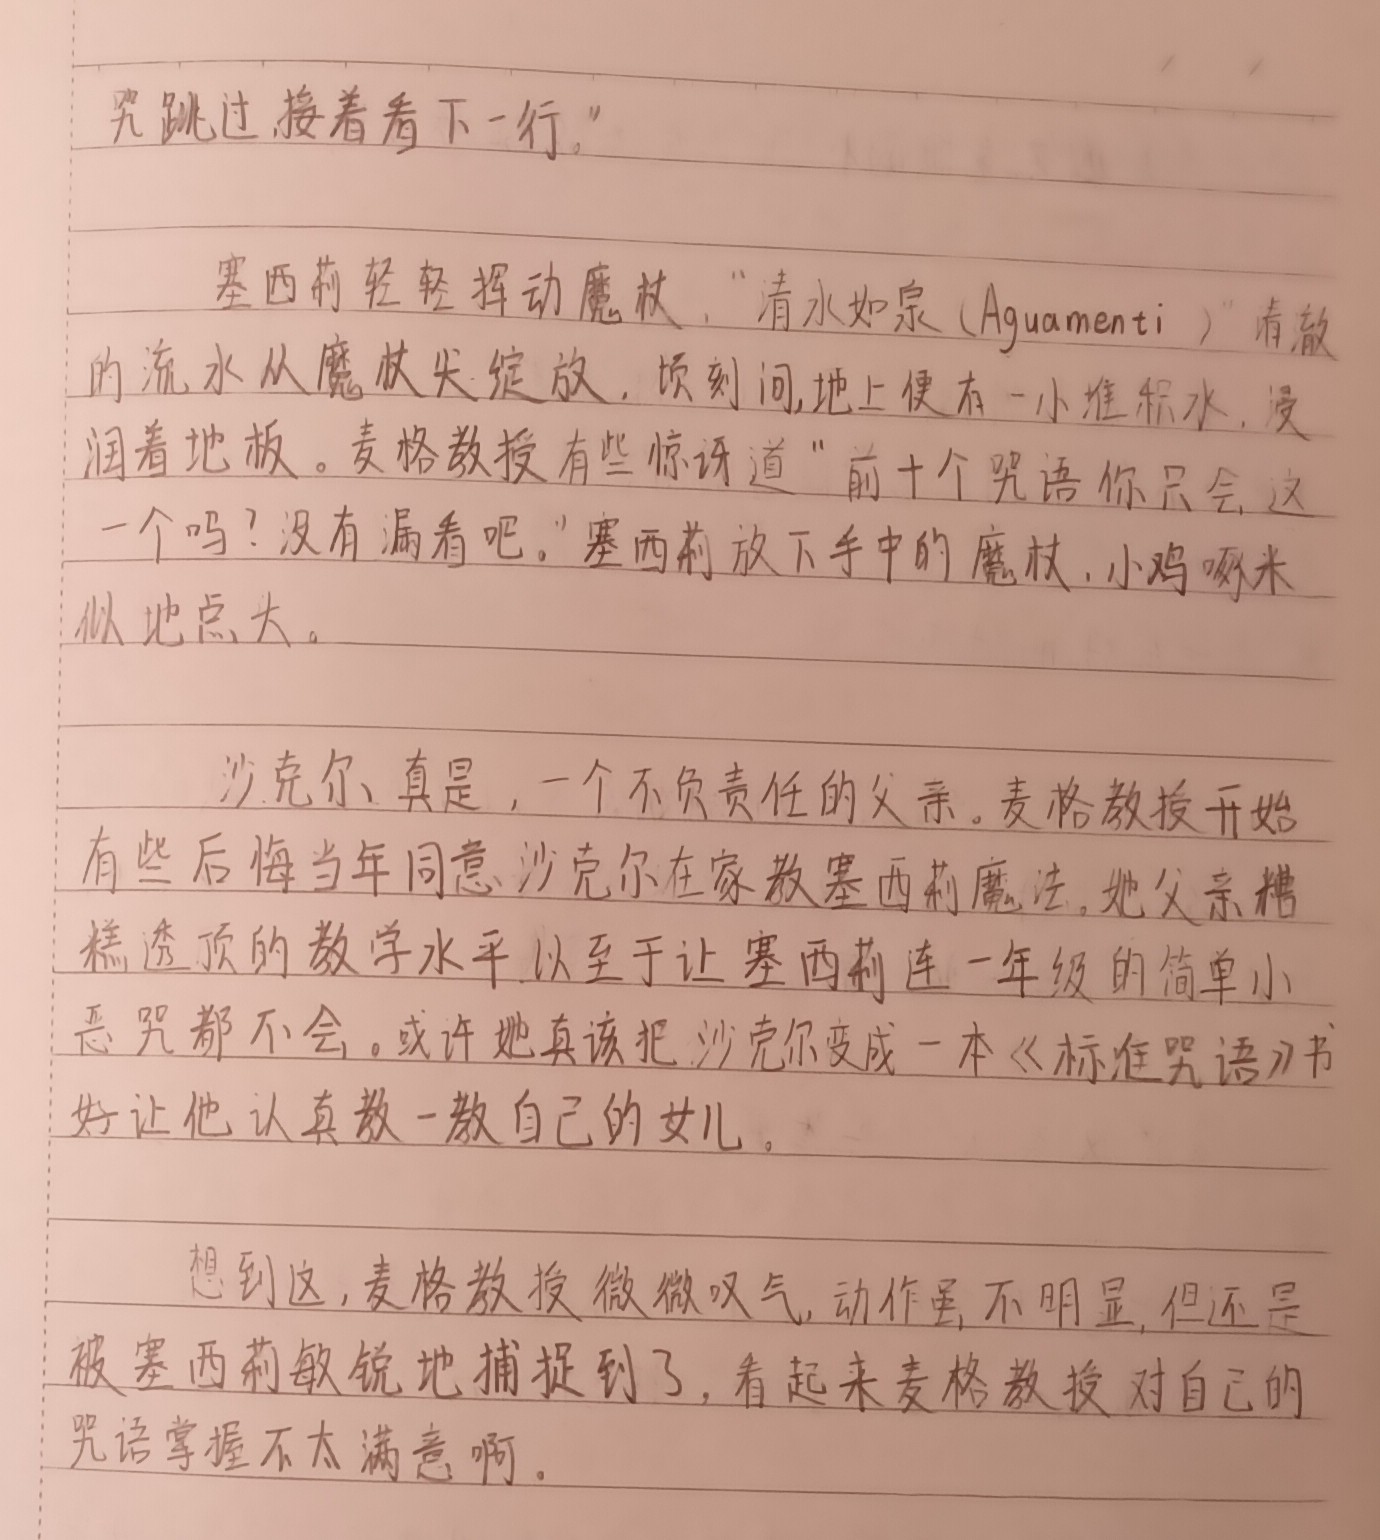 咒跳过,接着看下一行。”
塞西莉轻轻挥动魔杖，“清水如泉（Aguamenti ）”清澈
的流水从魔杖尖绽放，顷刻间,地上便有一小堆积水，浸
润着地板。麦格教授有些惊讶道“前十个咒语你只会这
一个吗？没有漏看吧。”塞西莉放下手中的魔杖，小鸡啄米
似地点头。
沙克尔、真是，一个不负责任的父亲。麦格教授开始
有些后悔当年同意沙克尔在家教塞西莉魔法。她父亲糟
糕透顶的教学水平以至于让塞西莉连一年级的简单小
恶咒都不会。或许她真该把沙克尔变成一本《标准咒语》书
好让他认真教一教自己的女儿。
想到这，麦格教授微微叹气，动作虽不明显，但还是
被塞西莉敏锐地捕捉到了，看起来麦格教授对自己的
咒语掌握不太满意啊。